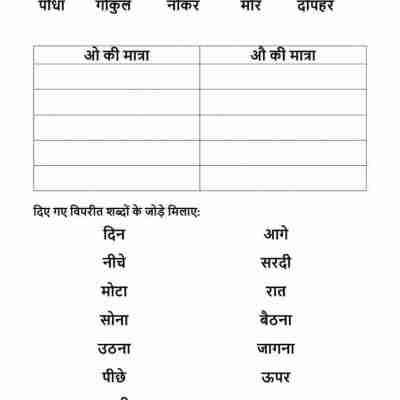 गोकुल मोर दोपहर
ओ की मात्रा औ की मात्रा
दिए गए विपरीत शब्दों के जोड़े मिलाए:
दिन आगे
नीचे सरदी
मोटा रात
सोना बैठना
उठना जागना
पीछे ऊपर